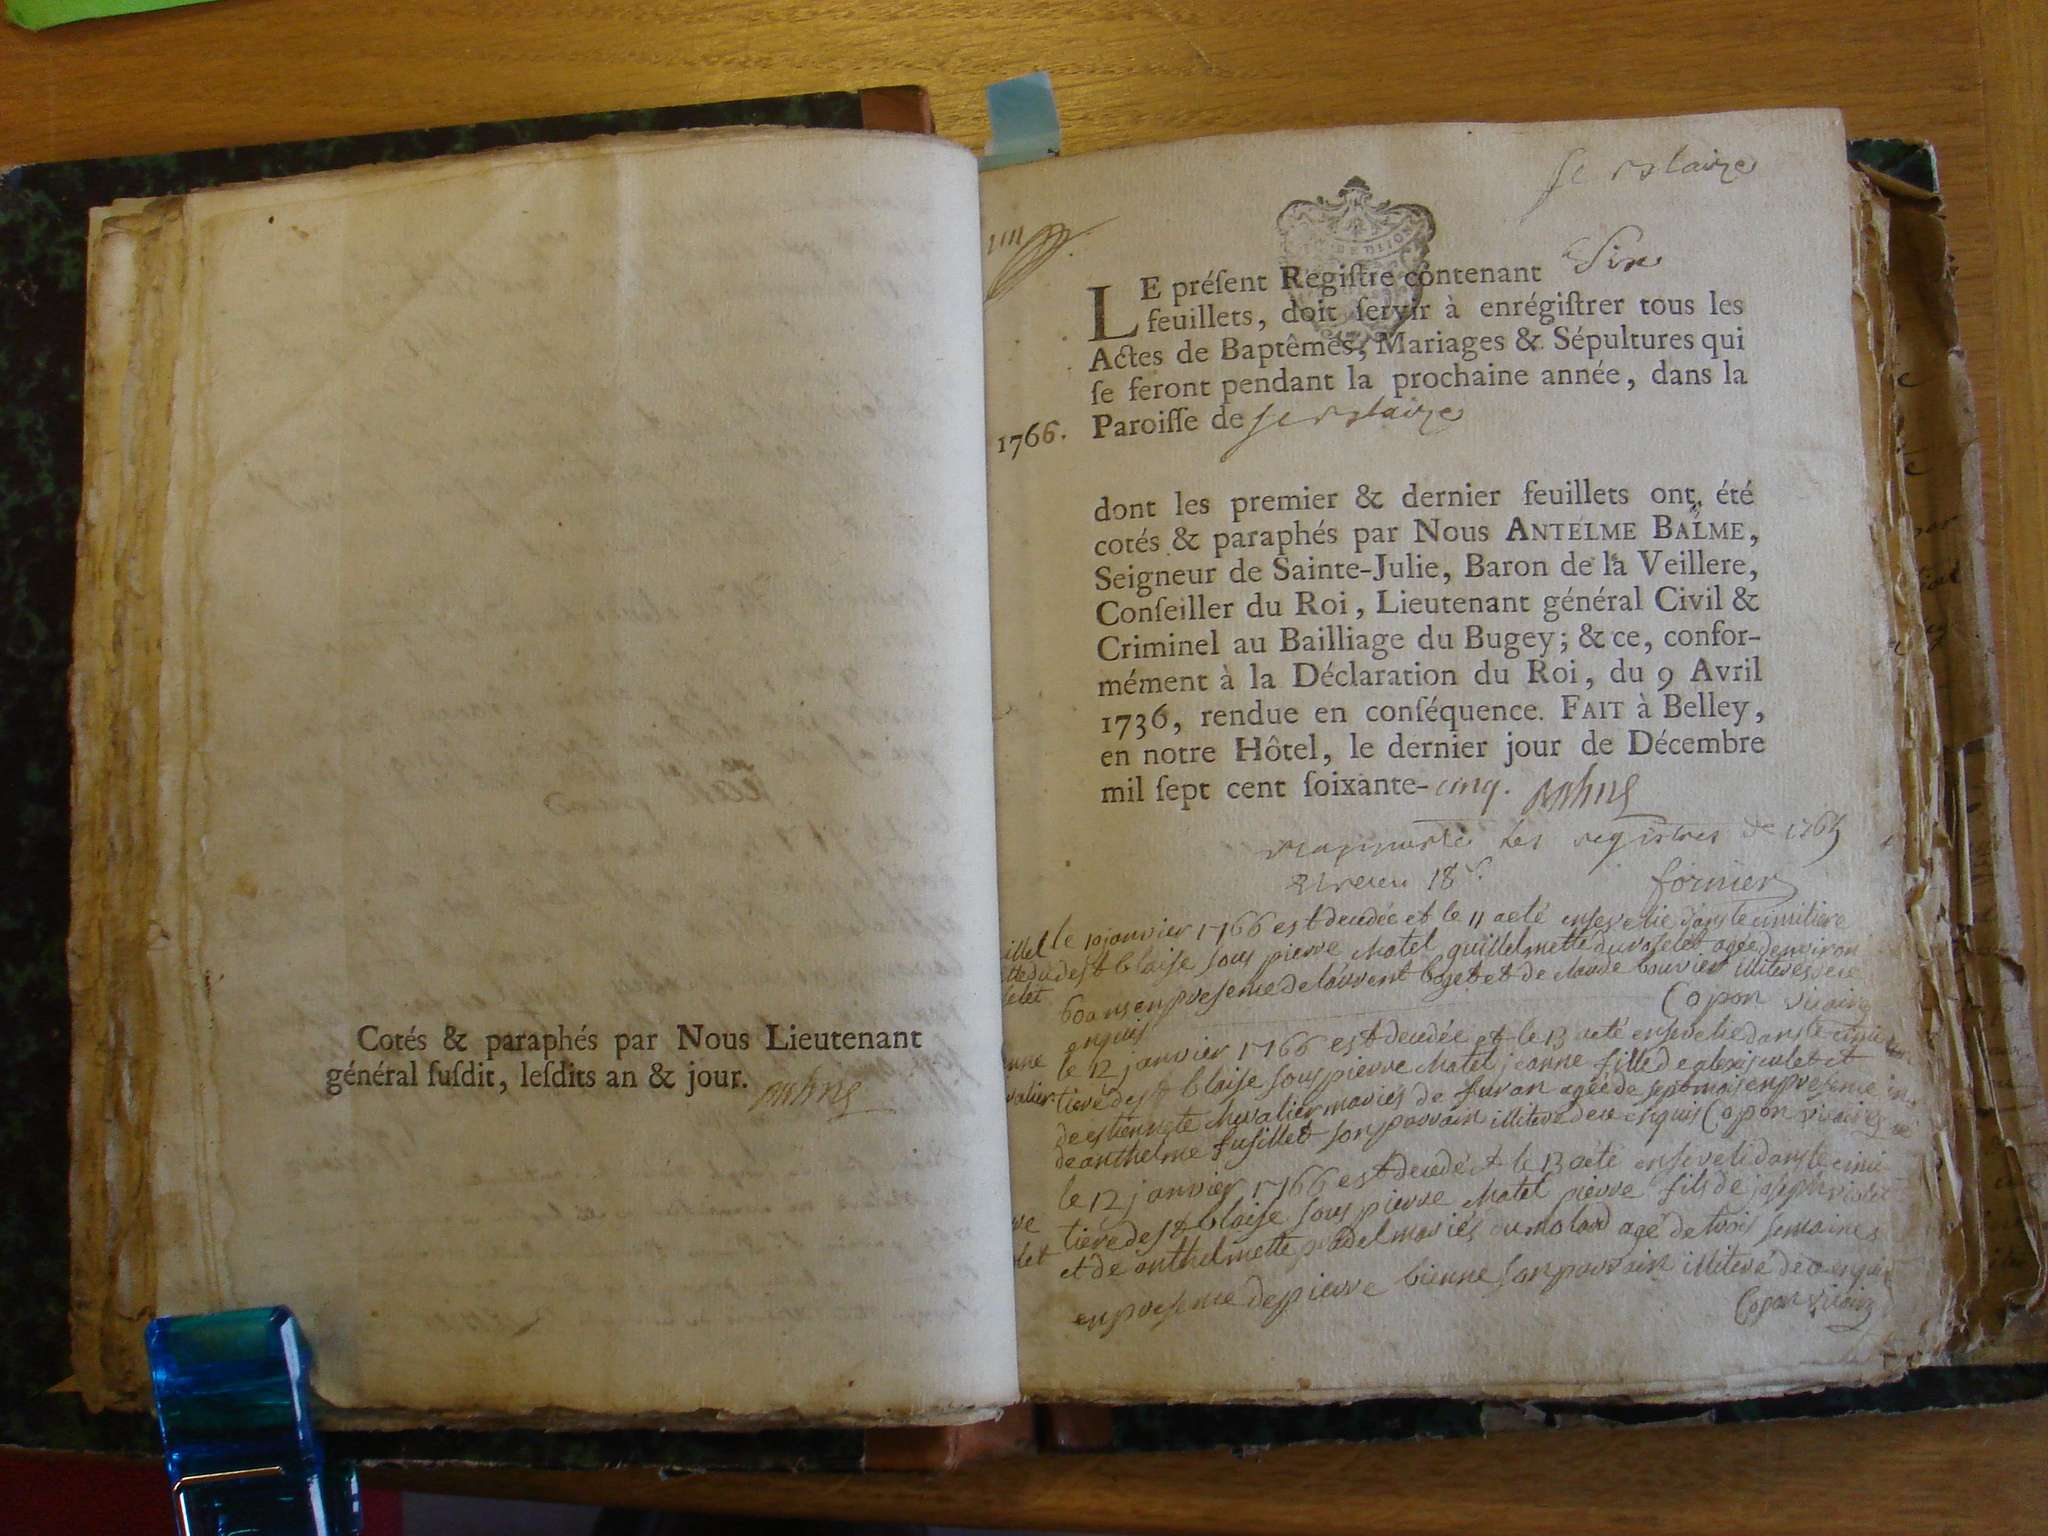 Cotés & paraphés par Nous Lieutenant
général ſuſdit, leſdits an & jour.
LE préſent Regiſtre contenant Six
feuillets, doit ſervir à enrégiſtrer tous les
Actes de Baptêmes, Mariages & Sépultures qui
ſe feront pendant la prochaine année, dans la
1766. Paroiſſe de
dont les premier & dernier feuillets ont été
cotés & paraphés par Nous ANTELME BALME,
Seigneur de Sainte-Julie, Baron de la Veillere,
Conſeiller du Roi, Lieutenant général Civil &
Criminel au Bailliage du Bugey; & ce, confor-
mément à la Déclaration du Roi, du 9 Avril
1736, rendue en conſéquence. FAIT à Belley,
en notre Hôtel, le dernier jour de Décembre
mil ſept cent ſoixante-cinq.
les registres de 1765
18
le 10 janvier 1766 est decedée et le 11 a eté ensevelie dans le cimitiere
de st blaise sous pierre Matel guillelmette agée denviron
60 ans en presence de laurent et de claude bouvier illiteres de ce
enquis Copon vicaire
le 12 janvier 1766 est decedée et le 13 a eté ensevelie dans le cimi
tiere de st blaise sous pierre Matel jeanne fille de alexis et
de estiennete chevalier mariés de furan agée de sept mois en presence
de anthelme fusillet son parrain illiteré de ce enquis Copon vicaire
le 12 janvier 1766 est decedé et le 13 a eté enseveli dans le cimi
tiere de st blaise sous pierre Matel pierre fils de joseph violet
et de anthelmette mariés du molard agé de trois semaines
en presence de pierre bienne son parrain illiteré de ce enquis
Copon vicaire